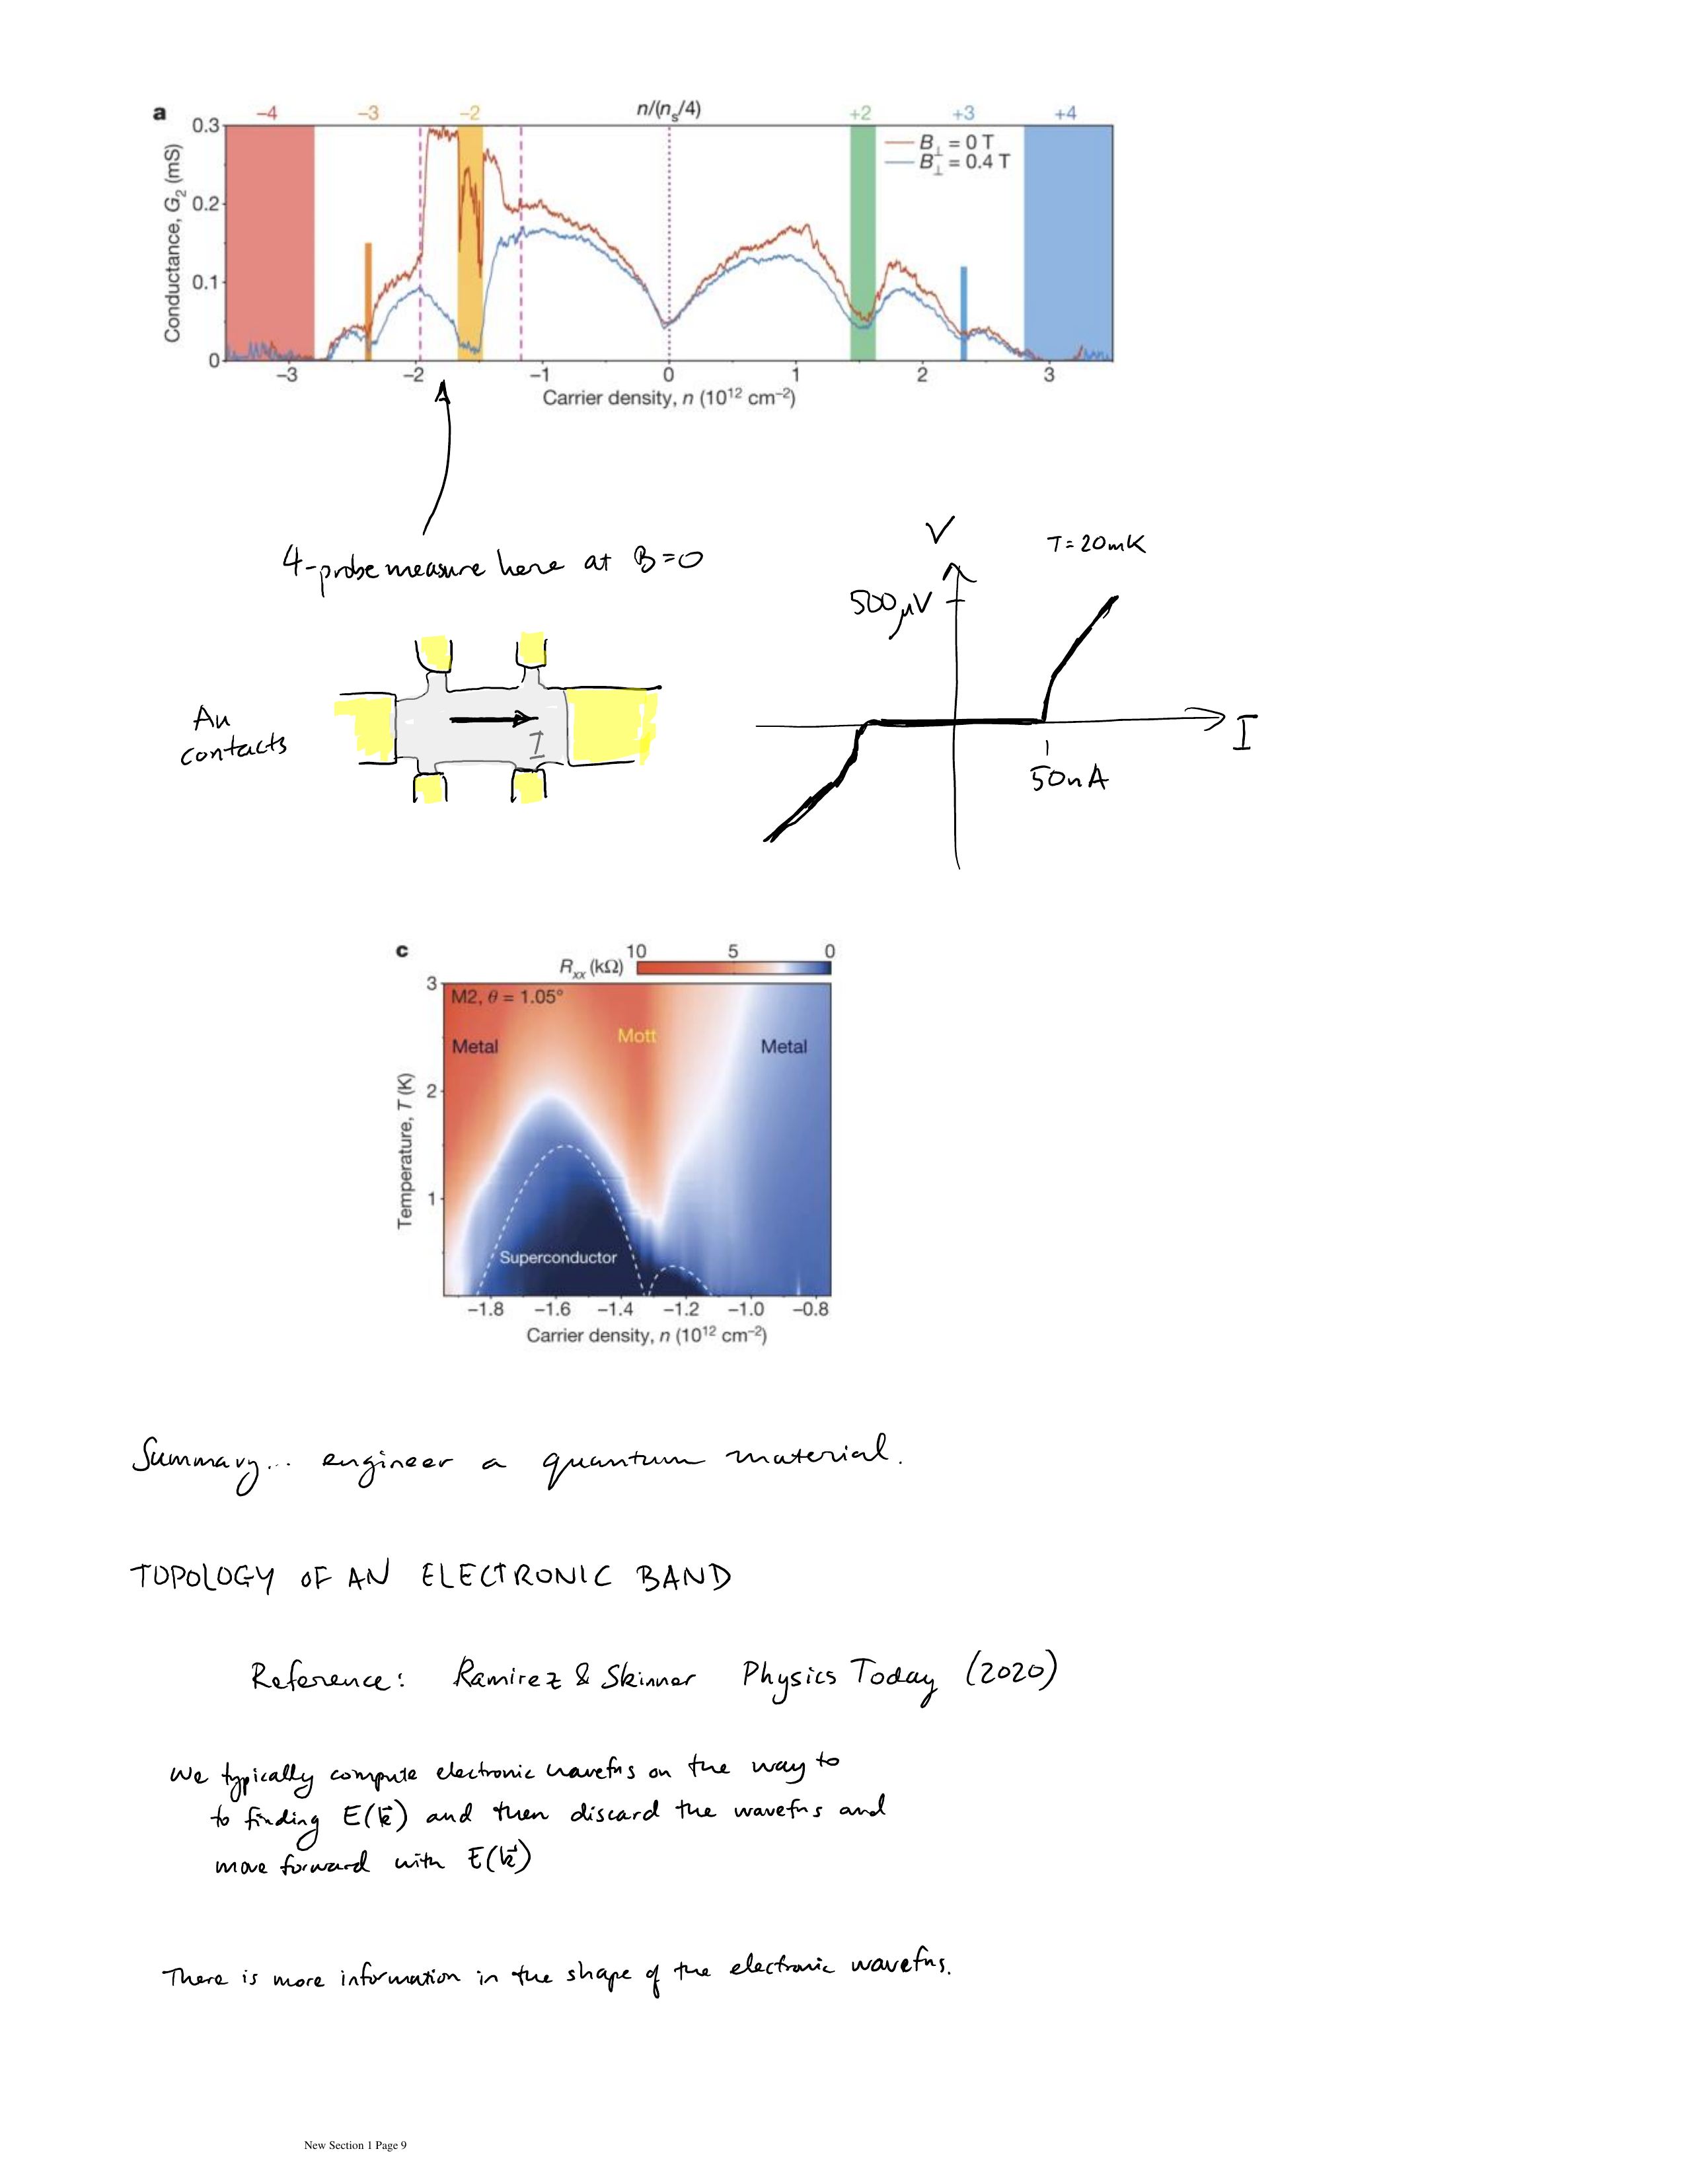 a
−4 −3 −2 n/(ns/4) +2 +3 +4
Conductance, G2 (mS)
0.3
0.2
0.1
0
B⊥ = 0 T
B⊥ = 0.4 T
−3 −2 −1 0 1 2 3
Carrier density, n (10¹² cm⁻²)
4-probe measure here at B=0
V
T=20mK
500μV
I
50nA
Au
contacts
I
c
10 5 0
Rxx (kΩ)
M2, θ = 1.05°
Mott
Metal
Metal
Superconductor
Temperature, T (K)
3
2
1
−1.8 −1.6 −1.4 −1.2 −1.0 −0.8
Carrier density, n (10¹² cm⁻²)
Summary... engineer a quantum material.
TOPOLOGY OF AN ELECTRONIC BAND
Reference: Ramirez & Skinner Physics Today (2020)
We typically compute electronic wavefns on the way to
to finding E(k⃗) and then discard the wavefns and
move forward with E(k⃗)
There is more information in the shape of the electronic wavefns.
New Section 1 Page 9